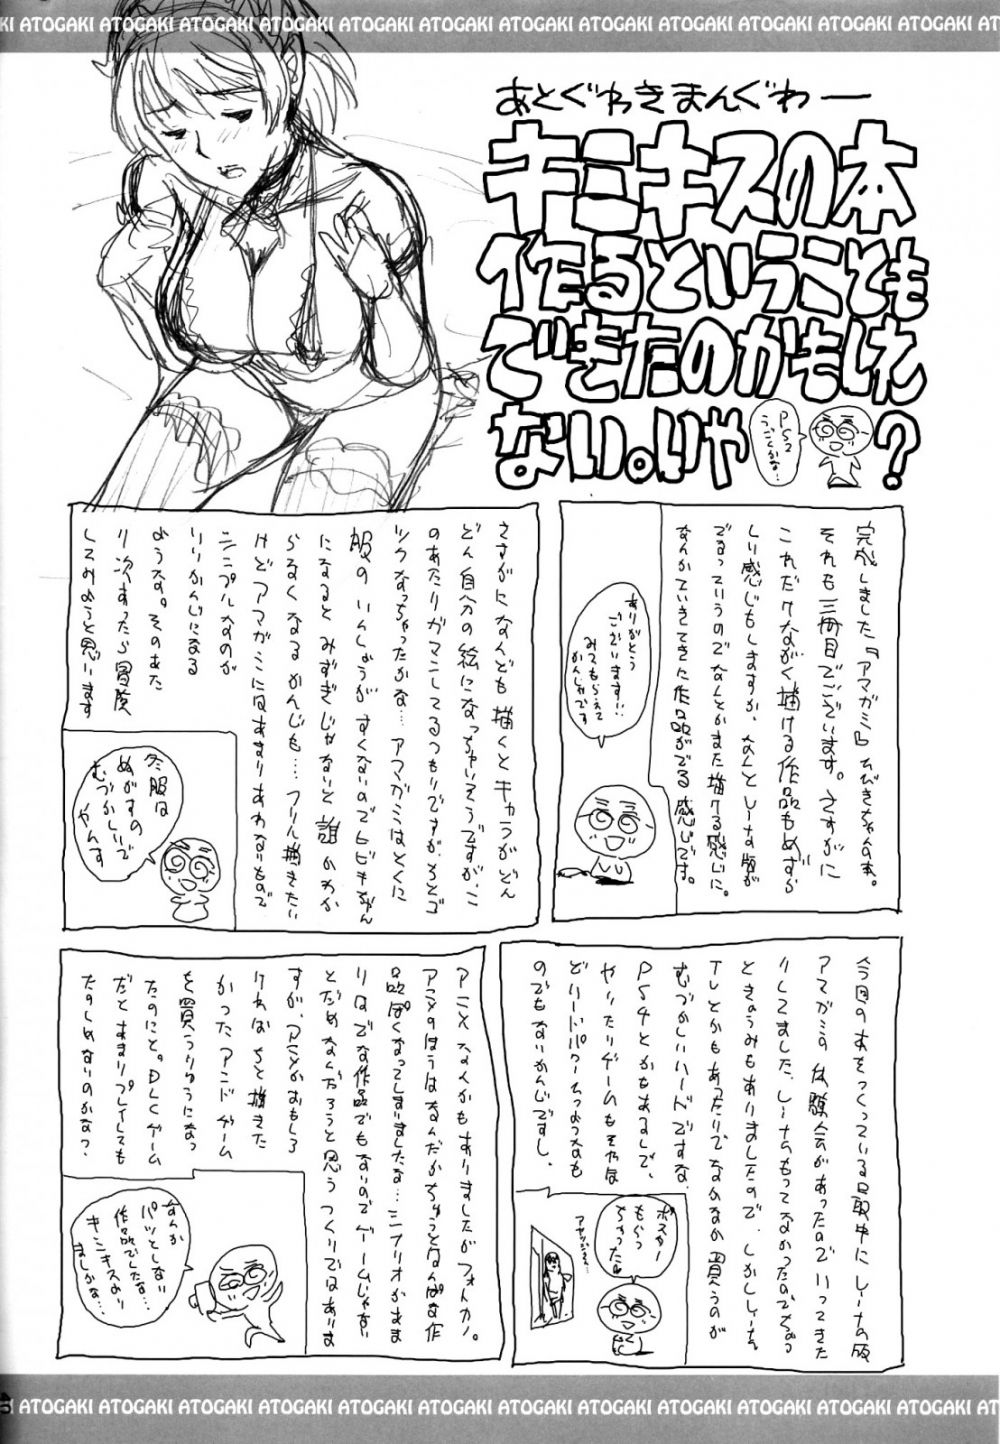 ATOGAKI ATOGAKI ATOGAKI ATOGAKI ATOGAKI ATOGAKI ATOGAKI ATOGAKI ATOGAKI ATOGAKI ATOGAKI
あとぐゎきまんぐゎー
キミキスの本
作るということも
できたのかもしれ
ない。いや
?
PS2
うごくかな…
完成しました『アマガミ』ひびきちゃん本。
それも三冊目でございます。さすがに
これだけながく描ける作品もめずら
しい感じもしますが、なんとしーな版が
でるっていうのでなんとかまた描ける感じに。
なんかていきてきに作品がでる感じです。
ありがとう
ございます!!
みてもらえて
かんしゃです
さすがになんども描くとキャラがどん
どん自分の絵になっちゃいそうですが、こ
のあたりガマンしてるつもりですが、ろとゴ
ツクなっちゃったかな…アマガミはとくに
服のいしょうがすくないのでヒビキちゃん
になるとみずぎじゃないと誰かわか
らなくなるかんじも…フリル描きたい
けどアマガミにはあまりあわないもので
シンプルなのが
いいかんじになる
ような。そのあた
り次あったら冒険
してみようと思います
冬服は
ぬがすの
むづかしいで
やんす
今回の本をつくっている最中にしーなの版
アマガミの体験会があったのでいってきた
りしてました、しーなもってなかったのでちょっ
ときょうみもありましたので、しかししーな
TVとかもあったりでなかなか買うのが
むづかしいハードですな、
PS4とかもあるしで、
やりたりゲームもそれほ
どハードパワーつかうようなも
のでもないかんじですし、
ポスター
もらっ
ちゃったな
アニメとなんかもありましたがフォトカノ。
アニメのほうはなんだかちょっとなんぱな作
品ぽくなってしまいましたな…シナリオがあま
りはでな作品でもないのでゲームじゃない
とだめなんだろうと思うつくりではありま
すが、アニメがおもしろ
ければもちっと描きた
かったアンドゲーム
を買うりゆうになっ
たのにと。DLCゲーム
だとあまりプレイしても
たのしめないのかな?
なんか
パッとしない
作品でしたな…
キミキスより
ましかな…
ATOGAKI ATOGAKI ATOGAKI ATOGAKI ATOGAKI ATOGAKI ATOGAKI ATOGAKI ATOGAKI ATOGAKI ATOGAKI